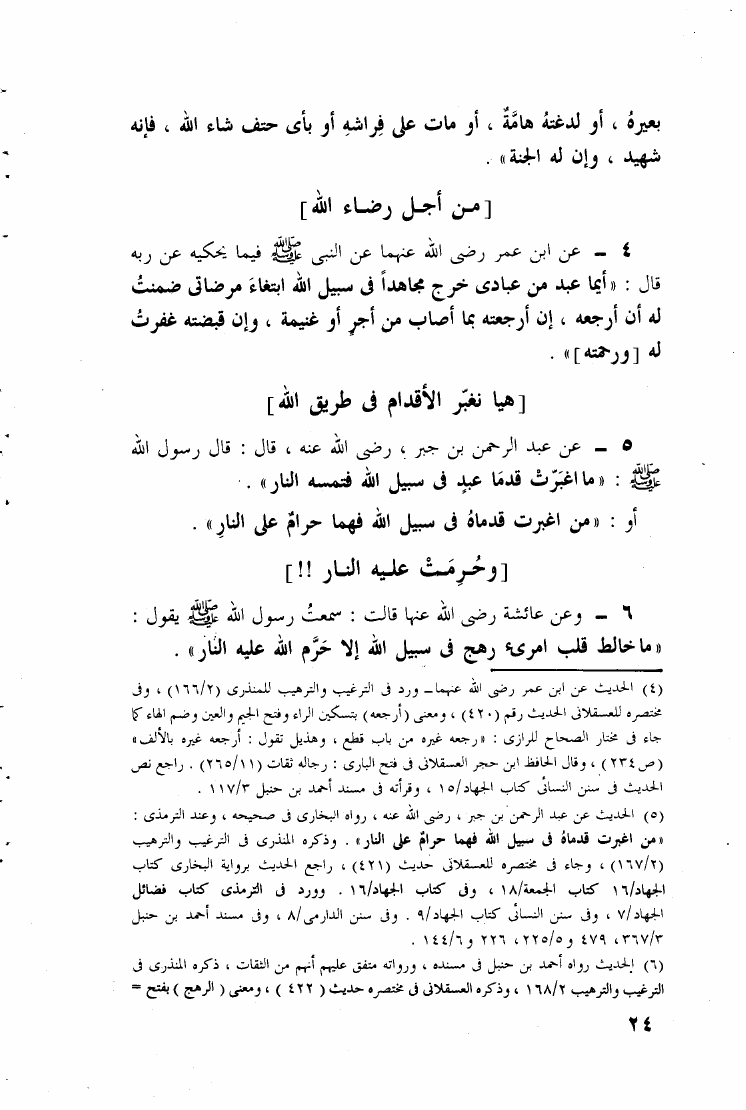 بعيرهُ ، أو لدغتهُ هامَّةٌ ، أو مات على فِراشهِ أو بأى حتف شاء الله ، فإنه
شهيد ، وإن له الجنة» .
[من أجل رضاء الله]
٤ – عن ابن عمر رضى الله عنهما عن النبى ﷺ فيما يحكيه عن ربه
قال : «أيما عبد من عبادى خرج مجاهداً فى سبيل الله ابتغاءَ مرضاتى ضمنتُ
له أن أرجعه ، إن أرجعته بما أصاب من أجرٍ أو غنيمة ، وإن قبضته غفرتُ
له [ورحمته]» .
[هيا نغبّر الأقدام فى طريق الله]
٥ – عن عبد الرحمن بن جبر ، رضى الله عنه ، قال : قال رسول الله
ﷺ : «ما اغبَرّتْ قدمَا عبدٍ فى سبيل الله فتمسه النار» .
أو : «من اغبرت قدماهُ فى سبيل الله فهما حرامٌ على النارِ» .
[وحُرِمَتْ عليه النار !!]
٦ – وعن عائشة رضى الله عنها قالت : سمعتُ رسول الله ﷺ يقول :
«ما خالط قلب امرىء رهج فى سبيل الله إلا حَرَّم الله عليه النار» .
(٤) الحديث عن ابن عمر رضى الله عنهما– ورد فى الترغيب والترهيب للمنذرى (١٦٦/٢) ، وفى
مختصره للعسقلانى الحديث رقم (٤٢٠) ، ومعنى (أرجعه) بتسكين الراء وفتح الجيم والعين وضم الهاء كما
جاء فى مختار الصحاح للرازى : «رجعه غيره من باب قطع ، وهذيل تقول : أرجعه غيره بالألف»
(ص ٢٣٤) ، وقال الحافظ ابن حجر العسقلانى فى فتح البارى : رجاله ثقات (٢٦٥/١١) . راجع نص
الحديث فى سنن النسائى كتاب الجهاد/١٥ ، وقرأته فى مسند أحمد بن حنبل ١١٧/٣ .
(٥) الحديث عن عبد الرحمن بن جبر ، رضى الله عنه ، رواه البخارى فى صحيحه ، وعند الترمذى :
«من اغبرت قدماهُ فى سبيل الله فهما حرامٌ على النار» . وذكره المنذرى فى الترغيب والترهيب
(١٦٧/٢) ، وجاء فى مختصره للعسقلانى حديث (٤٢١) ، راجع الحديث برواية البخارى كتاب
الجهاد/١٦ كتاب الجمعة/١٨ ، وفى كتاب الجهاد/١٦ . وورد فى الترمذى كتاب فضائل
الجهاد/٧ ، وفى سنن النسائى كتاب الجهاد/٩ . وفى سنن الدارمى/٨ ، وفى مسند أحمد بن حنبل
٣٦٧/٣، ٤٧٩ و٢٢٥/٥، ٢٢٦ و١٤٤/٦ .
(٦) الحديث رواه أحمد بن حنبل فى مسنده ، ورواته متفق عليهم أنهم من الثقات ، ذكره المنذرى فى
الترغيب والترهيب ١٦٨/٢ ، وذكره العسقلانى فى مختصره حديث ( ٤٢٢ ) ، ومعنى ( الرهج ) بفتح =
٢٤